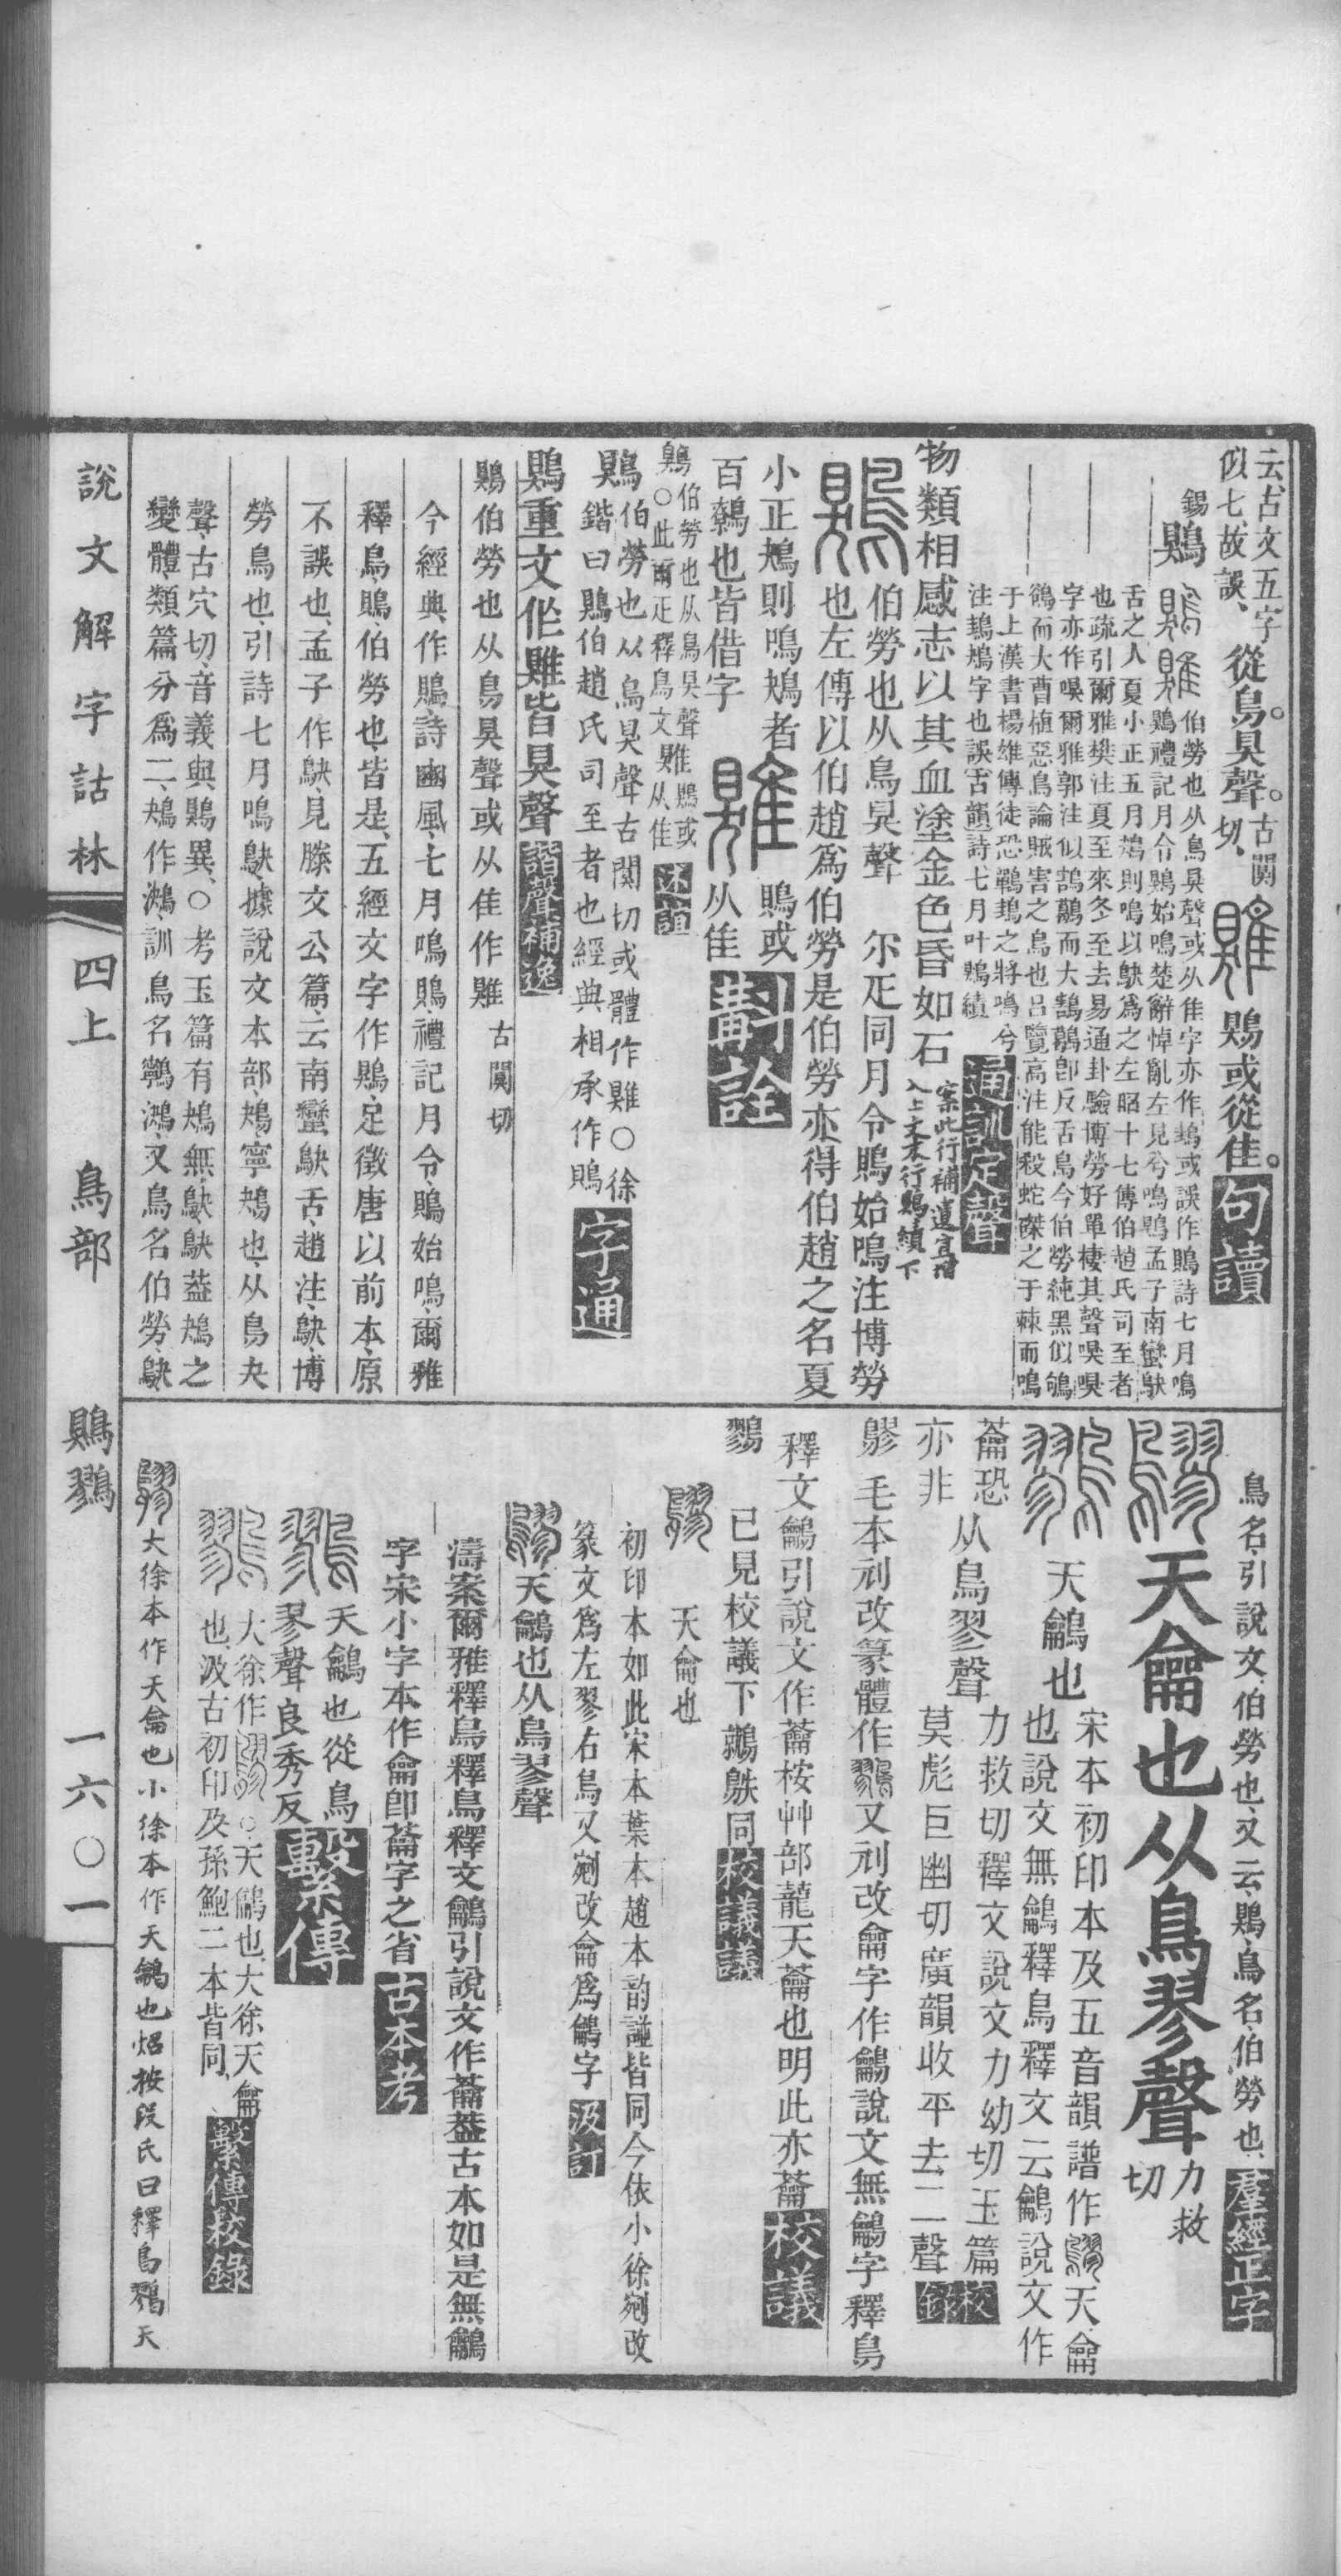 云古文五字
似七故誤、從鳥狊聲。古闃切、
鶪或從隹。句讀
錫鶪
伯勞也从鳥狊聲或从隹字亦作鵙或誤作鵙詩七月鳴
鶪禮記月令鶪始鳴楚辭悼亂左見兮鳴鶪孟子南蠻鴃
舌之人夏小正五月鴂則鳴以鴃爲之左昭十七傳伯趙氏司至者
也疏引爾雅樊注夏至來冬至去易通卦驗博勞好單棲其聲嗅嗅
字亦作嗅爾雅郭注似鶷鶡而大鶷鶡卽反舌鳥今伯勞純黑似鴝
鵒而大曹植惡鳥論賊害之鳥也呂覽高注能殺蛇磔之于棘而鳴
于上漢書楊雄傳徒恐鷤鵙之將鳴兮
注鵙鴂字也誤古韻詩七月叶鶪績
通訓定聲
物類相感志以其血塗金色昏如石
案此行補遺宜增
入上文末行鶪績下
伯勞也从鳥狊聲
尒疋同月令鵙始鳴注博勞
也左傳以伯趙爲伯勞是伯勞亦得伯趙之名夏
小正鴂則鳴鴂者
百鷯也皆借字
鵙或
从隹
斠詮
鶪伯勞也从鳥狊聲雎鶪或
○此爾疋釋鳥文从隹
述誼
鶪伯勞也从鳥狊聲古闃切或體作雎○徐
鍇曰鶪伯趙氏司至者也經典相承作鵙
字通
鶪重文作雎皆狊聲諧聲補逸
鶪伯勞也从鳥狊聲或从隹作雎古闃切
今經典作鵙、詩豳風、七月鳴鵙、禮記月令、鵙始鳴、爾雅
釋鳥、鵙、伯勞也、皆是、五經文字作鶪、足徵唐以前本、原
不誤也、孟子作鴃、見滕文公篇、云南蠻鴃舌、趙注、鴃、博
勞鳥也、引詩七月鳴鴃、據說文本部、鴂、寧鴂也、从鳥夬
聲、古穴切、音義與鶪異、○考玉篇有鴂無鴃、鴃蓋鴂之
變體、類篇分爲二、鴂作鴂、訓鳥名鸋鴂、又鳥名伯勞、鴃、
說文解字詁林
四上
鳥部
鶪鷚
一六〇一
鳥名、引說文、伯勞也、又云、鶪、鳥名、伯勞也、羣經正字
天龠也从鳥翏聲力救切
天鸙也
宋本初印本及五音韻譜作天龠
也說文無鸙釋鳥釋文云鸙說文作
蘥恐
亦非
从鳥翏聲
力救切釋文說文力幼切玉篇
莫彪巨幽切廣韻收平去二聲
校錄
鷚毛本刓改篆體作又刓改龠字作鸙說文無鸙字釋鳥
釋文鸙引說文作蘥桉艸部蘢天蘥也明此亦蘥校議
鷚已見校議下鷚䳀同校議議
天龠也
初印本如此宋本葉本趙本韵譜皆同今依小徐剜改
篆文爲左翏右鳥又剜改龠爲鸙字汲訂
天鸙也从鳥翏聲
濤案爾雅釋鳥釋鳥釋文鸙引說文作蘥葢古本如是無鸙
字宋小字本作龠卽蘥字之省古本考
天鸙也從鳥
翏聲良秀反
繫傳
大徐作○天鸙也、大徐天龠
也、汲古初印及孫鮑二本皆同、
繫傳校錄
大徐本作天龠也小徐本作天鸙也炤按段氏曰釋鳥鷚天